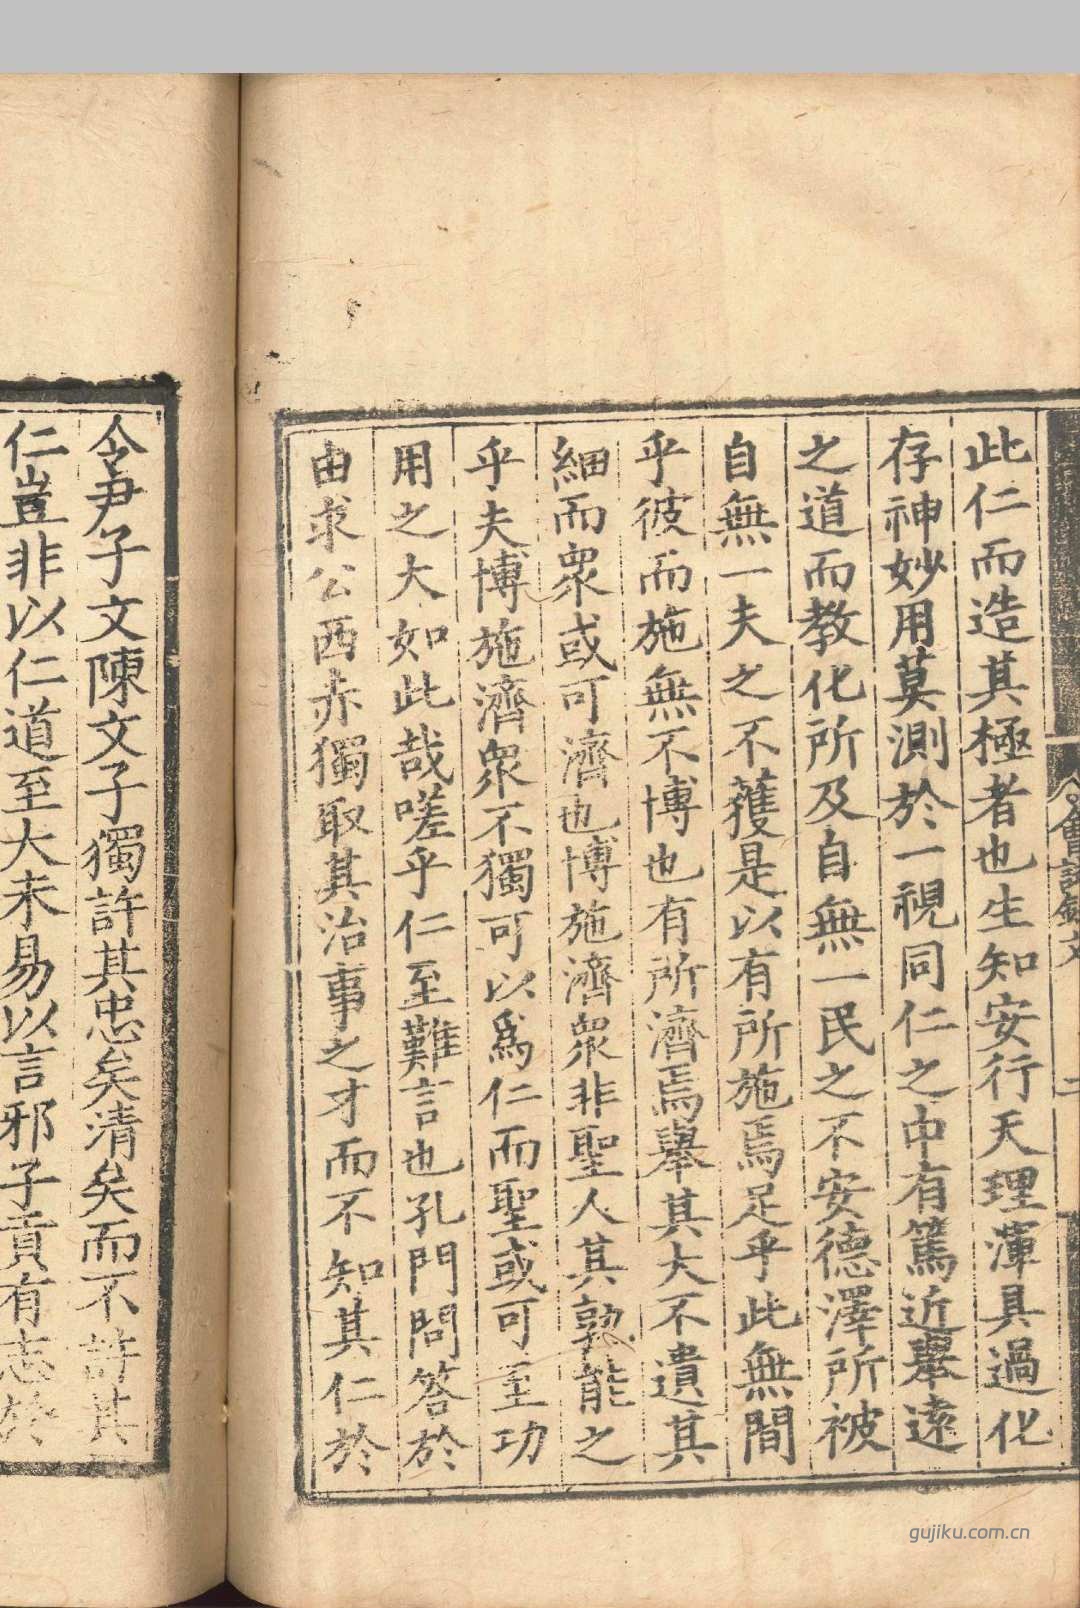 會試錄文
二
此仁而造其極者也生知安行天理渾具過化
存神妙用莫測於一視同仁之中有篤近舉遠
之道而教化所及自無一民之不安德澤所被
自無一夫之不獲是以有所施焉足乎此無間
乎彼而施無不博也有所濟焉舉其大不遺其
細而眾或可濟也博施濟眾非聖人其孰能之
乎夫博施濟眾不獨可以為仁而聖或可至功
用之大如此哉嗟乎仁至難言也孔門問答於
由求公西赤獨取其治事之才而不知其仁於
令尹子文陳文子獨許其忠矣清矣而不許其
仁豈非以仁道至大未易以言邪子貢有志於
gujiku.com.cn